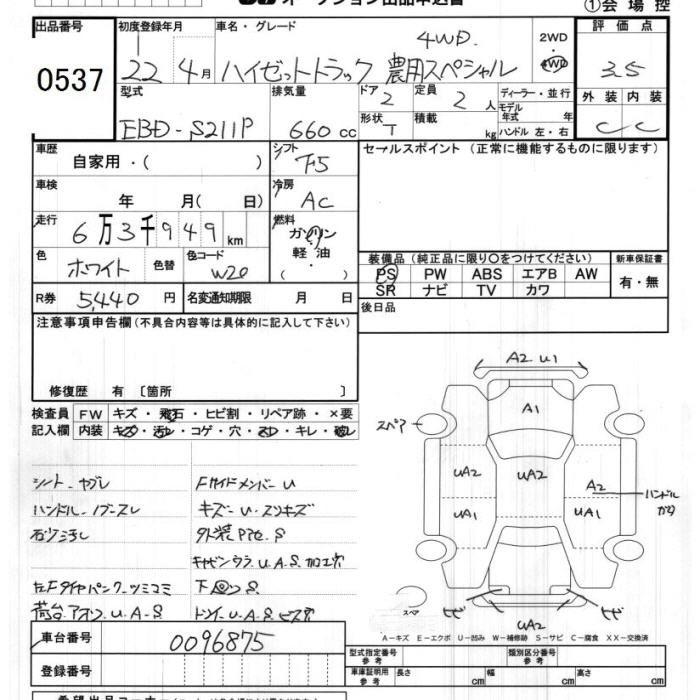 オークション出品申込書
①会場控
出品番号
0537
初度登録年月
22 4月
車名・グレード
4WD.
ハイゼットトラック 農用スペシャル
2WD
・
4WD
評価点
3.5
型式
EBD-S211P
排気量
660 cc
ドア 2
定員 2 人
形状 T
積載 kg
ディーラー・並行
モデル
年式 年
ハンドル 左・右
外装 内装
C C
車歴
自家用・( )
シフト
F5
セールスポイント (正常に機能するものに限ります)
車検
年 月( 日)
冷房
AC
走行
6万3千949 km
燃料
ガソリン
軽油
・( )
色
ホワイト
色替
色コード
W20
装備品 (純正品に限り○をつけてください)
新車保証書
PS PW ABS エアB AW
SR ナビ TV カワ
有・無
R券 5,440 円
名変通知期限 月 日
後日品
注意事項申告欄 (不具合内容等は具体的に記入して下さい)
修復歴 有 〔箇所 〕
検査員
記入欄
FW キズ・飛石・ヒビ割・リペア跡・×要
内装 キズ・汚レ・コゲ・穴・スレ・キレ・破レ
シート ヤブレ
ハンドル ノブスレ
石ハネ汚レ
左Fタイヤパンク ツミコミ
荷台アオリ U.A.S
Fサイドメンバー U
キズ・U・スリキズ
外装PアセS
キャビンウラ U.A.S 加工穴
下回りS
ドノイ U.A.S ビス穴
A2 U1
A1
スペア
UA2
UA2
A2
ハンドル
ガタ
UA1
UA1
ヒビ
ヒビ
スペア
UA2
A-キズ E-エクボ U-凹み W-補修跡 S-サビ C-腐食 XX-交換済
車台番号
0096875
登録番号
型式指定番号
参考
類別区分番号
参考
車庫証明用
参考
長さ cm
幅 cm
高さ cm